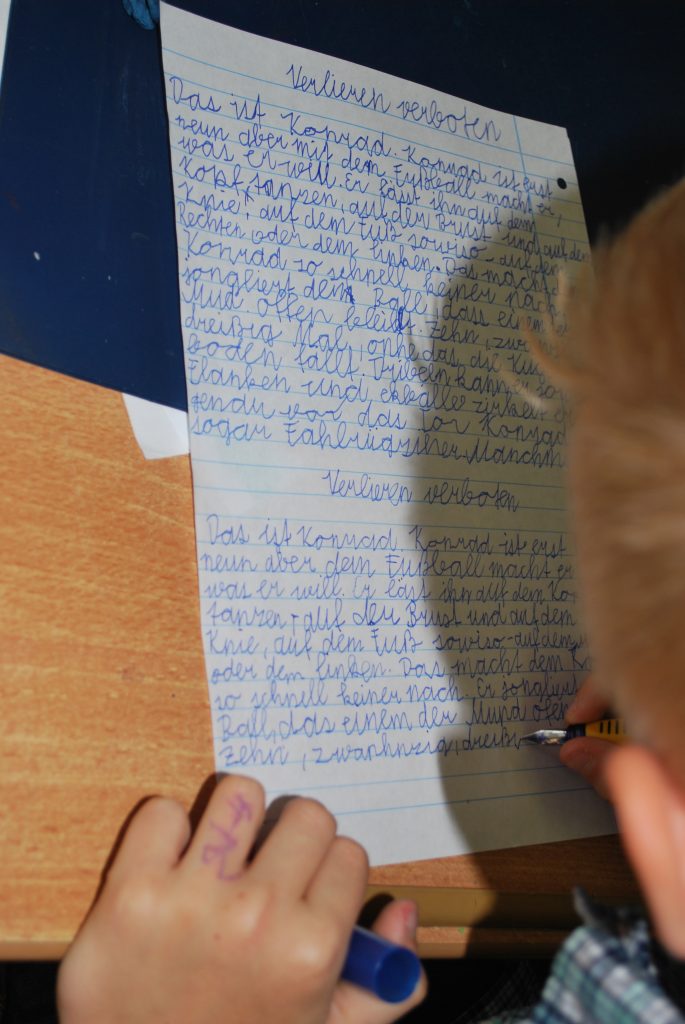 Verlieren verboten
Das ist Konrad. Konrad ist erst
neun aber mit dem Fußball macht er,
was er will. Er lässt ihn auf dem
Kopf, tanzen, auf der Brust und auf dem
Knie, auf dem Fuß sowiso auf dem
Rechten oder dem linken. Das macht
Konrad so schnell keiner nach
jongliert dem Ball, dass einem
Mud offen bleibt. Zehn,
dreißig Mal, ohne das, die
boden fällt. Tribeln kann er so
Flanken und ekbälle zirkelt er
genau vor das Tor Konrad
sogar Manchm
Verlieren verboten
Das ist Konrad. Konrad ist erst
neun aber dem Fußball macht er
was er will. Er läst ihn auf dem Ko
tanzen, auf der Brust und auf dem
Knie, auf dem Fuß sowiso auf dem
oder dem linken. Das macht dem K
so schnell keiner nach. Er jongliert
Ball, das einem der Mund ofen
Zehn, zwanhnzig, dreißi